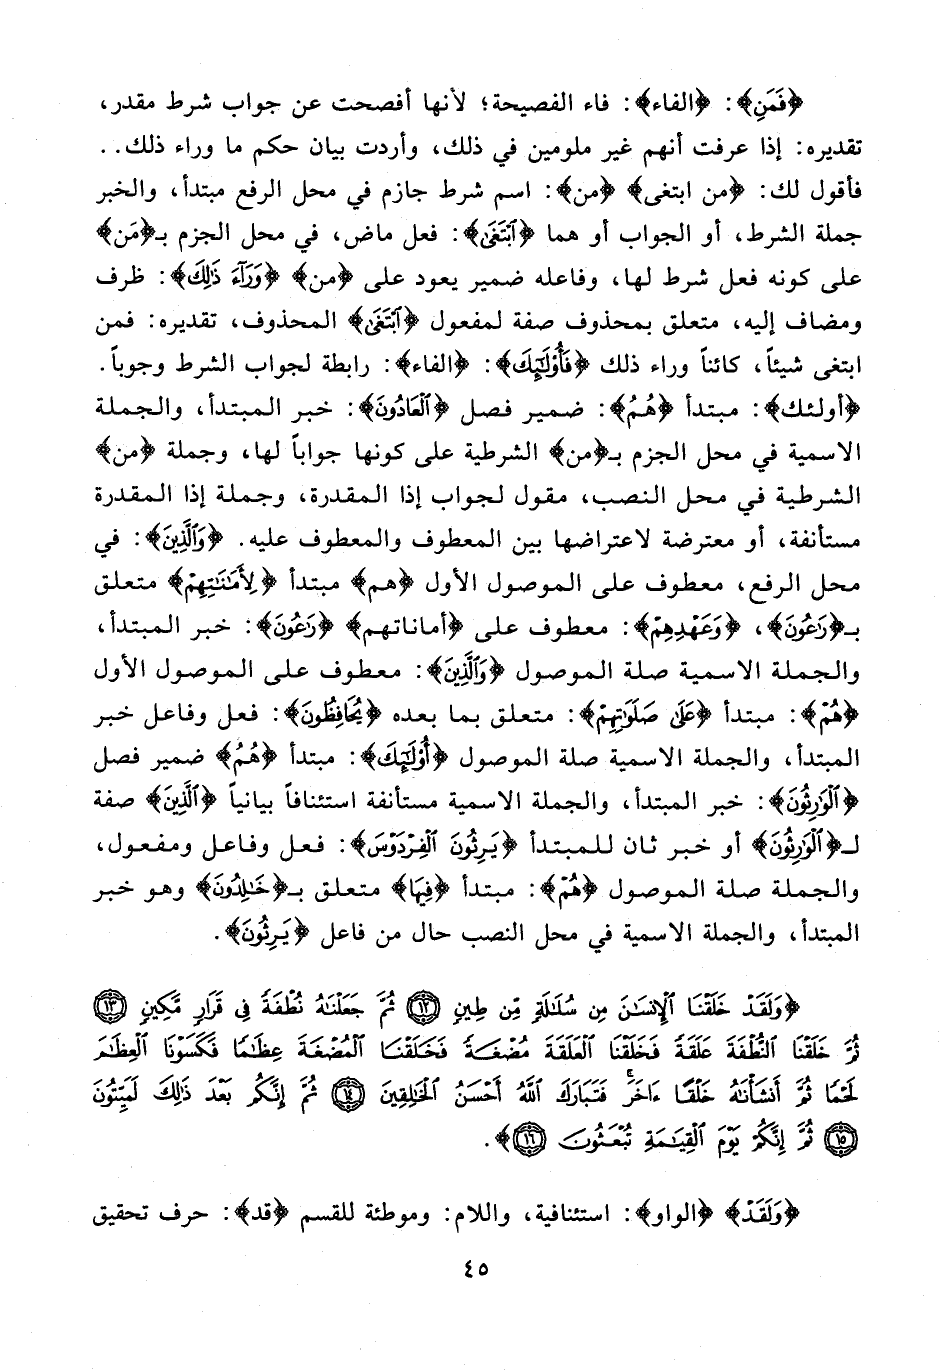 ﴿فَمَنِ﴾: ﴿الفاء﴾: فاء الفصيحة؛ لأنها أفصحت عن جواب شرط مقدر،
تقديره: إذا عرفت أنهم غير ملومين في ذلك، وأردت بيان حكم ما وراء ذلك..
فأقول لك: ﴿من ابتغى﴾ ﴿من﴾: اسم شرط جازم في محل الرفع مبتدأ، والخبر
جملة الشرط، أو الجواب أو هما ﴿ٱبْتَغَىٰ﴾: فعل ماض، في محل الجزم بـ﴿مَن﴾
على كونه فعل شرط لها، وفاعله ضمير يعود على ﴿من﴾ ﴿وَرَآءَ ذَٰلِكَ﴾: ظرف
ومضاف إليه، متعلق بمحذوف صفة لمفعول ﴿ٱبْتَغَىٰ﴾ المحذوف، تقديره: فمن
ابتغى شيئاً، كائناً وراء ذلك ﴿فَأُو۟لَٰٓئِكَ﴾: ﴿الفاء﴾: رابطة لجواب الشرط وجوباً.
﴿أولئك﴾: مبتدأ ﴿هُمُ﴾: ضمير فصل ﴿ٱلْعَادُونَ﴾: خبر المبتدأ، والجملة
الاسمية في محل الجزم بـ﴿من﴾ الشرطية على كونها جواباً لها، وجملة ﴿من﴾
الشرطية في محل النصب، مقول لجواب إذا المقدرة، وجملة إذا المقدرة
مستأنفة، أو معترضة لاعتراضها بين المعطوف والمعطوف عليه. ﴿وَٱلَّذِينَ﴾: في
محل الرفع، معطوف على الموصول الأول ﴿هم﴾ مبتدأ ﴿لِأَمَٰنَٰتِهِمْ﴾ متعلق
بـ﴿رَٰعُونَ﴾، ﴿وَعَهْدِهِمْ﴾: معطوف على ﴿أماناتهم﴾ ﴿رَٰعُونَ﴾: خبر المبتدأ،
والجملة الاسمية صلة الموصول ﴿وَٱلَّذِينَ﴾: معطوف على الموصول الأول
﴿هُمْ﴾: مبتدأ ﴿عَلَىٰ صَلَوَٰتِهِمْ﴾: متعلق بما بعده ﴿يُحَافِظُونَ﴾: فعل وفاعل خبر
المبتدأ، والجملة الاسمية صلة الموصول ﴿أُو۟لَٰٓئِكَ﴾: مبتدأ ﴿هُمُ﴾ ضمير فصل
﴿ٱلْوَٰرِثُونَ﴾: خبر المبتدأ، والجملة الاسمية مستأنفة استئنافاً بيانياً ﴿ٱلَّذِينَ﴾ صفة
لـ﴿ٱلْوَٰرِثُونَ﴾ أو خبر ثان للمبتدأ ﴿يَرِثُونَ ٱلْفِرْدَوْسَ﴾: فعل وفاعل ومفعول،
والجملة صلة الموصول ﴿هُمْ﴾: مبتدأ ﴿فِيهَا﴾ متعلق بـ﴿خَٰلِدُونَ﴾ وهو خبر
المبتدأ، والجملة الاسمية في محل النصب حال من فاعل ﴿يَرِثُونَ﴾.
﴿وَلَقَدْ خَلَقْنَا ٱلْإِنسَٰنَ مِن سُلَٰلَةٍ مِّن طِينٍ ١٢ ثُمَّ جَعَلْنَٰهُ نُطْفَةً فِى قَرَارٍ مَّكِينٍ ١٣
ثُمَّ خَلَقْنَا ٱلنُّطْفَةَ عَلَقَةً فَخَلَقْنَا ٱلْعَلَقَةَ مُضْغَةً فَخَلَقْنَا ٱلْمُضْغَةَ عِظَٰمًا فَكَسَوْنَا ٱلْعِظَٰمَ
لَحْمًا ثُمَّ أَنشَأْنَٰهُ خَلْقًا ءَاخَرَ ۚ فَتَبَارَكَ ٱللَّهُ أَحْسَنُ ٱلْخَٰلِقِينَ ١٤ ثُمَّ إِنَّكُم بَعْدَ ذَٰلِكَ لَمَيِّتُونَ
١٥ ثُمَّ إِنَّكُمْ يَوْمَ ٱلْقِيَٰمَةِ تُبْعَثُونَ ١٦﴾.
﴿وَلَقَدْ﴾ ﴿الواو﴾: استئنافية، واللام: وموطئة للقسم ﴿قد﴾: حرف تحقيق
٤٥